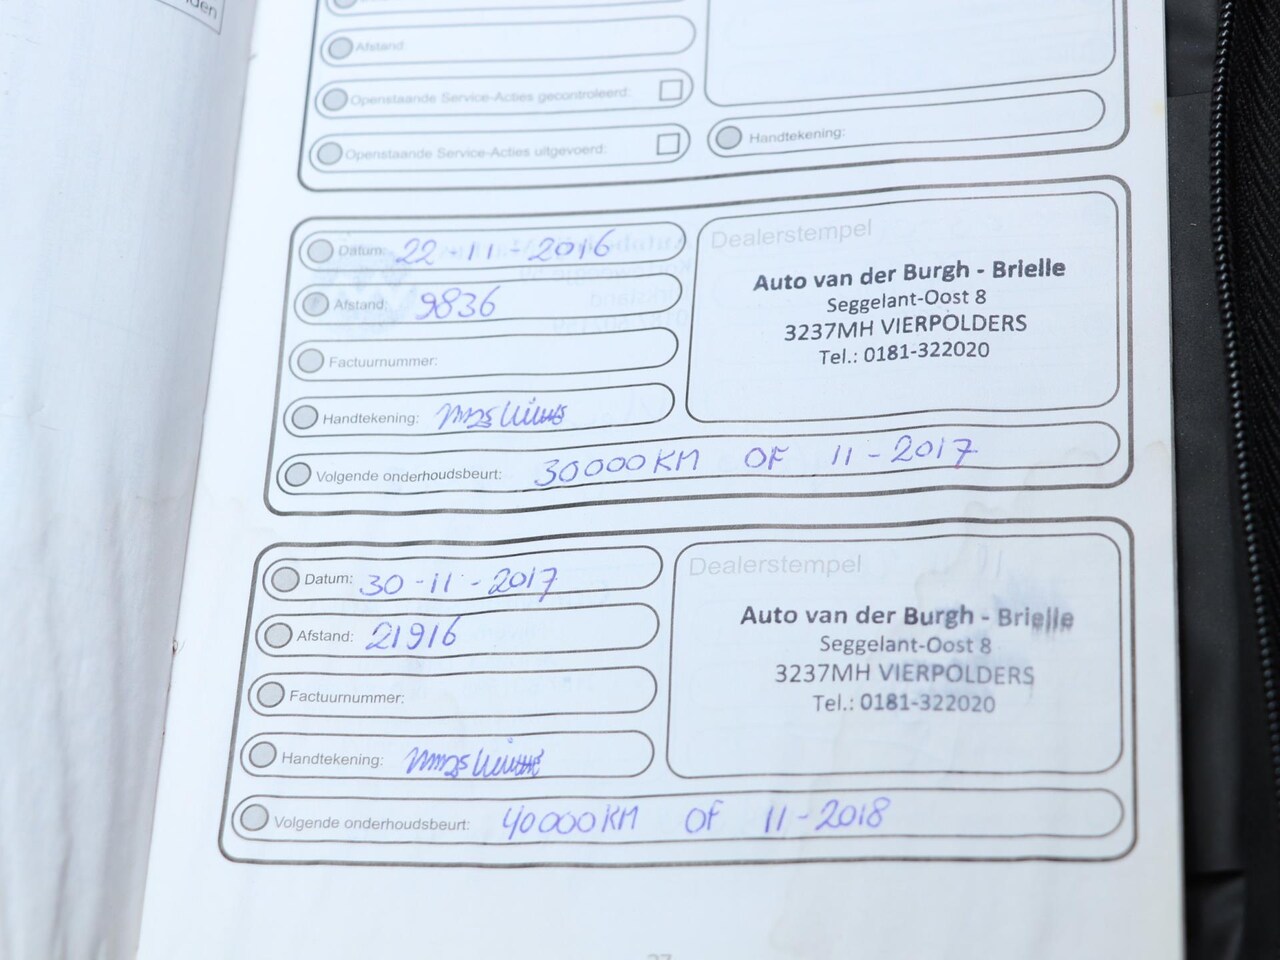 Afstand
Openstaande Service-Acties gecontroleerd:
Openstaande Service-Acties uitgevoerd:
Handtekening:
Datum: 22-11-2016
Afstand: 9836
Factuurnummer:
Handtekening:
Dealerstempel
Auto van der Burgh - Brielle
Seggelant-Oost 8
3237MH VIERPOLDERS
Tel.: 0181-322020
Volgende onderhoudsbeurt: 30000KM OF 11-2017
Datum: 30-11-2017
Afstand: 21916
Factuurnummer:
Handtekening:
Dealerstempel
Auto van der Burgh - Brielle
Seggelant-Oost 8
3237MH VIERPOLDERS
Tel.: 0181-322020
Volgende onderhoudsbeurt: 40000KM OF 11-2018